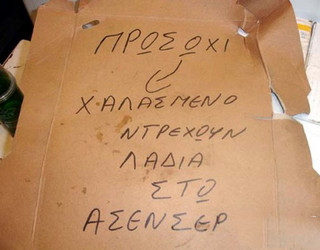 ΠΡΩΣΩΧΙ
ΧΑΛΑΣΜΕΝΟ
ΝΤΡΕΧΩΥΝ
ΛΑΔΙΑ
ΣΤΩ
ΑΣΕΝΣΕΡ